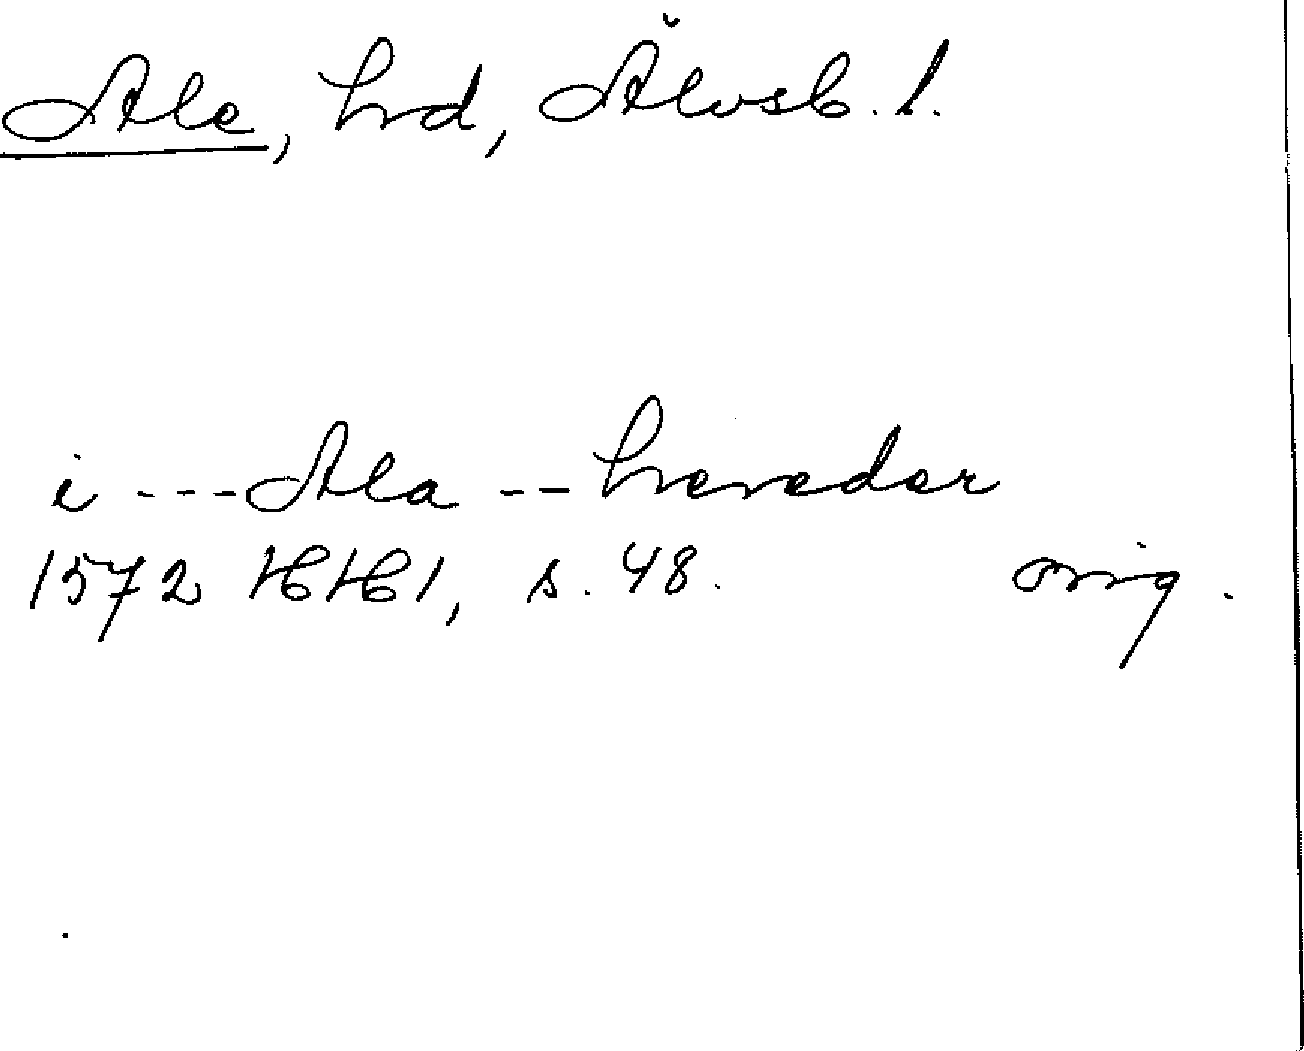 Ale, hrd, Älvsb. l.
i --- Ala -- hereder
1572 HH1, s. 48. orig.